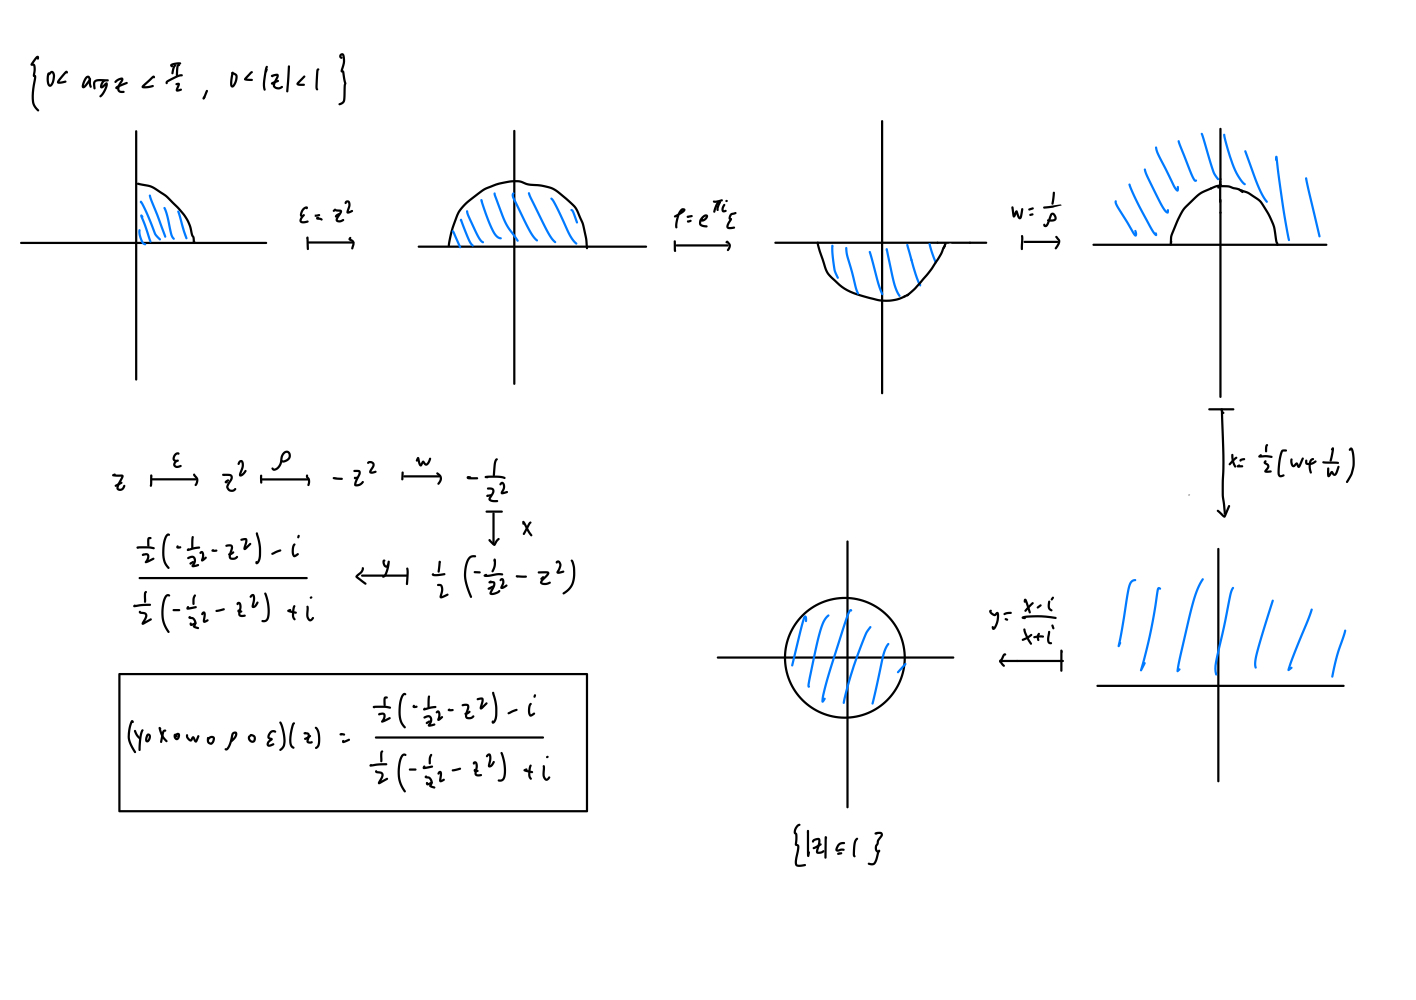 {0< arg z < π/2 , 0<|z|<1 }
ε = z²
ρ = e^{πi} ε
w = 1/ρ
x = 1/2 (w + 1/w)
z ↦^ε z² ↦^ρ -z² ↦^w -1/z²
↧ x
(1/2(-1/z² - z²) - i) / (1/2(-1/z² - z²) + i) ↤^y 1/2 (-1/z² - z²)
y = (x-i)/(x+i)
(y∘x∘w∘ρ∘ε)(z) = (1/2(-1/z² - z²) - i) / (1/2(-1/z² - z²) + i)
{|z| ≤ 1 }